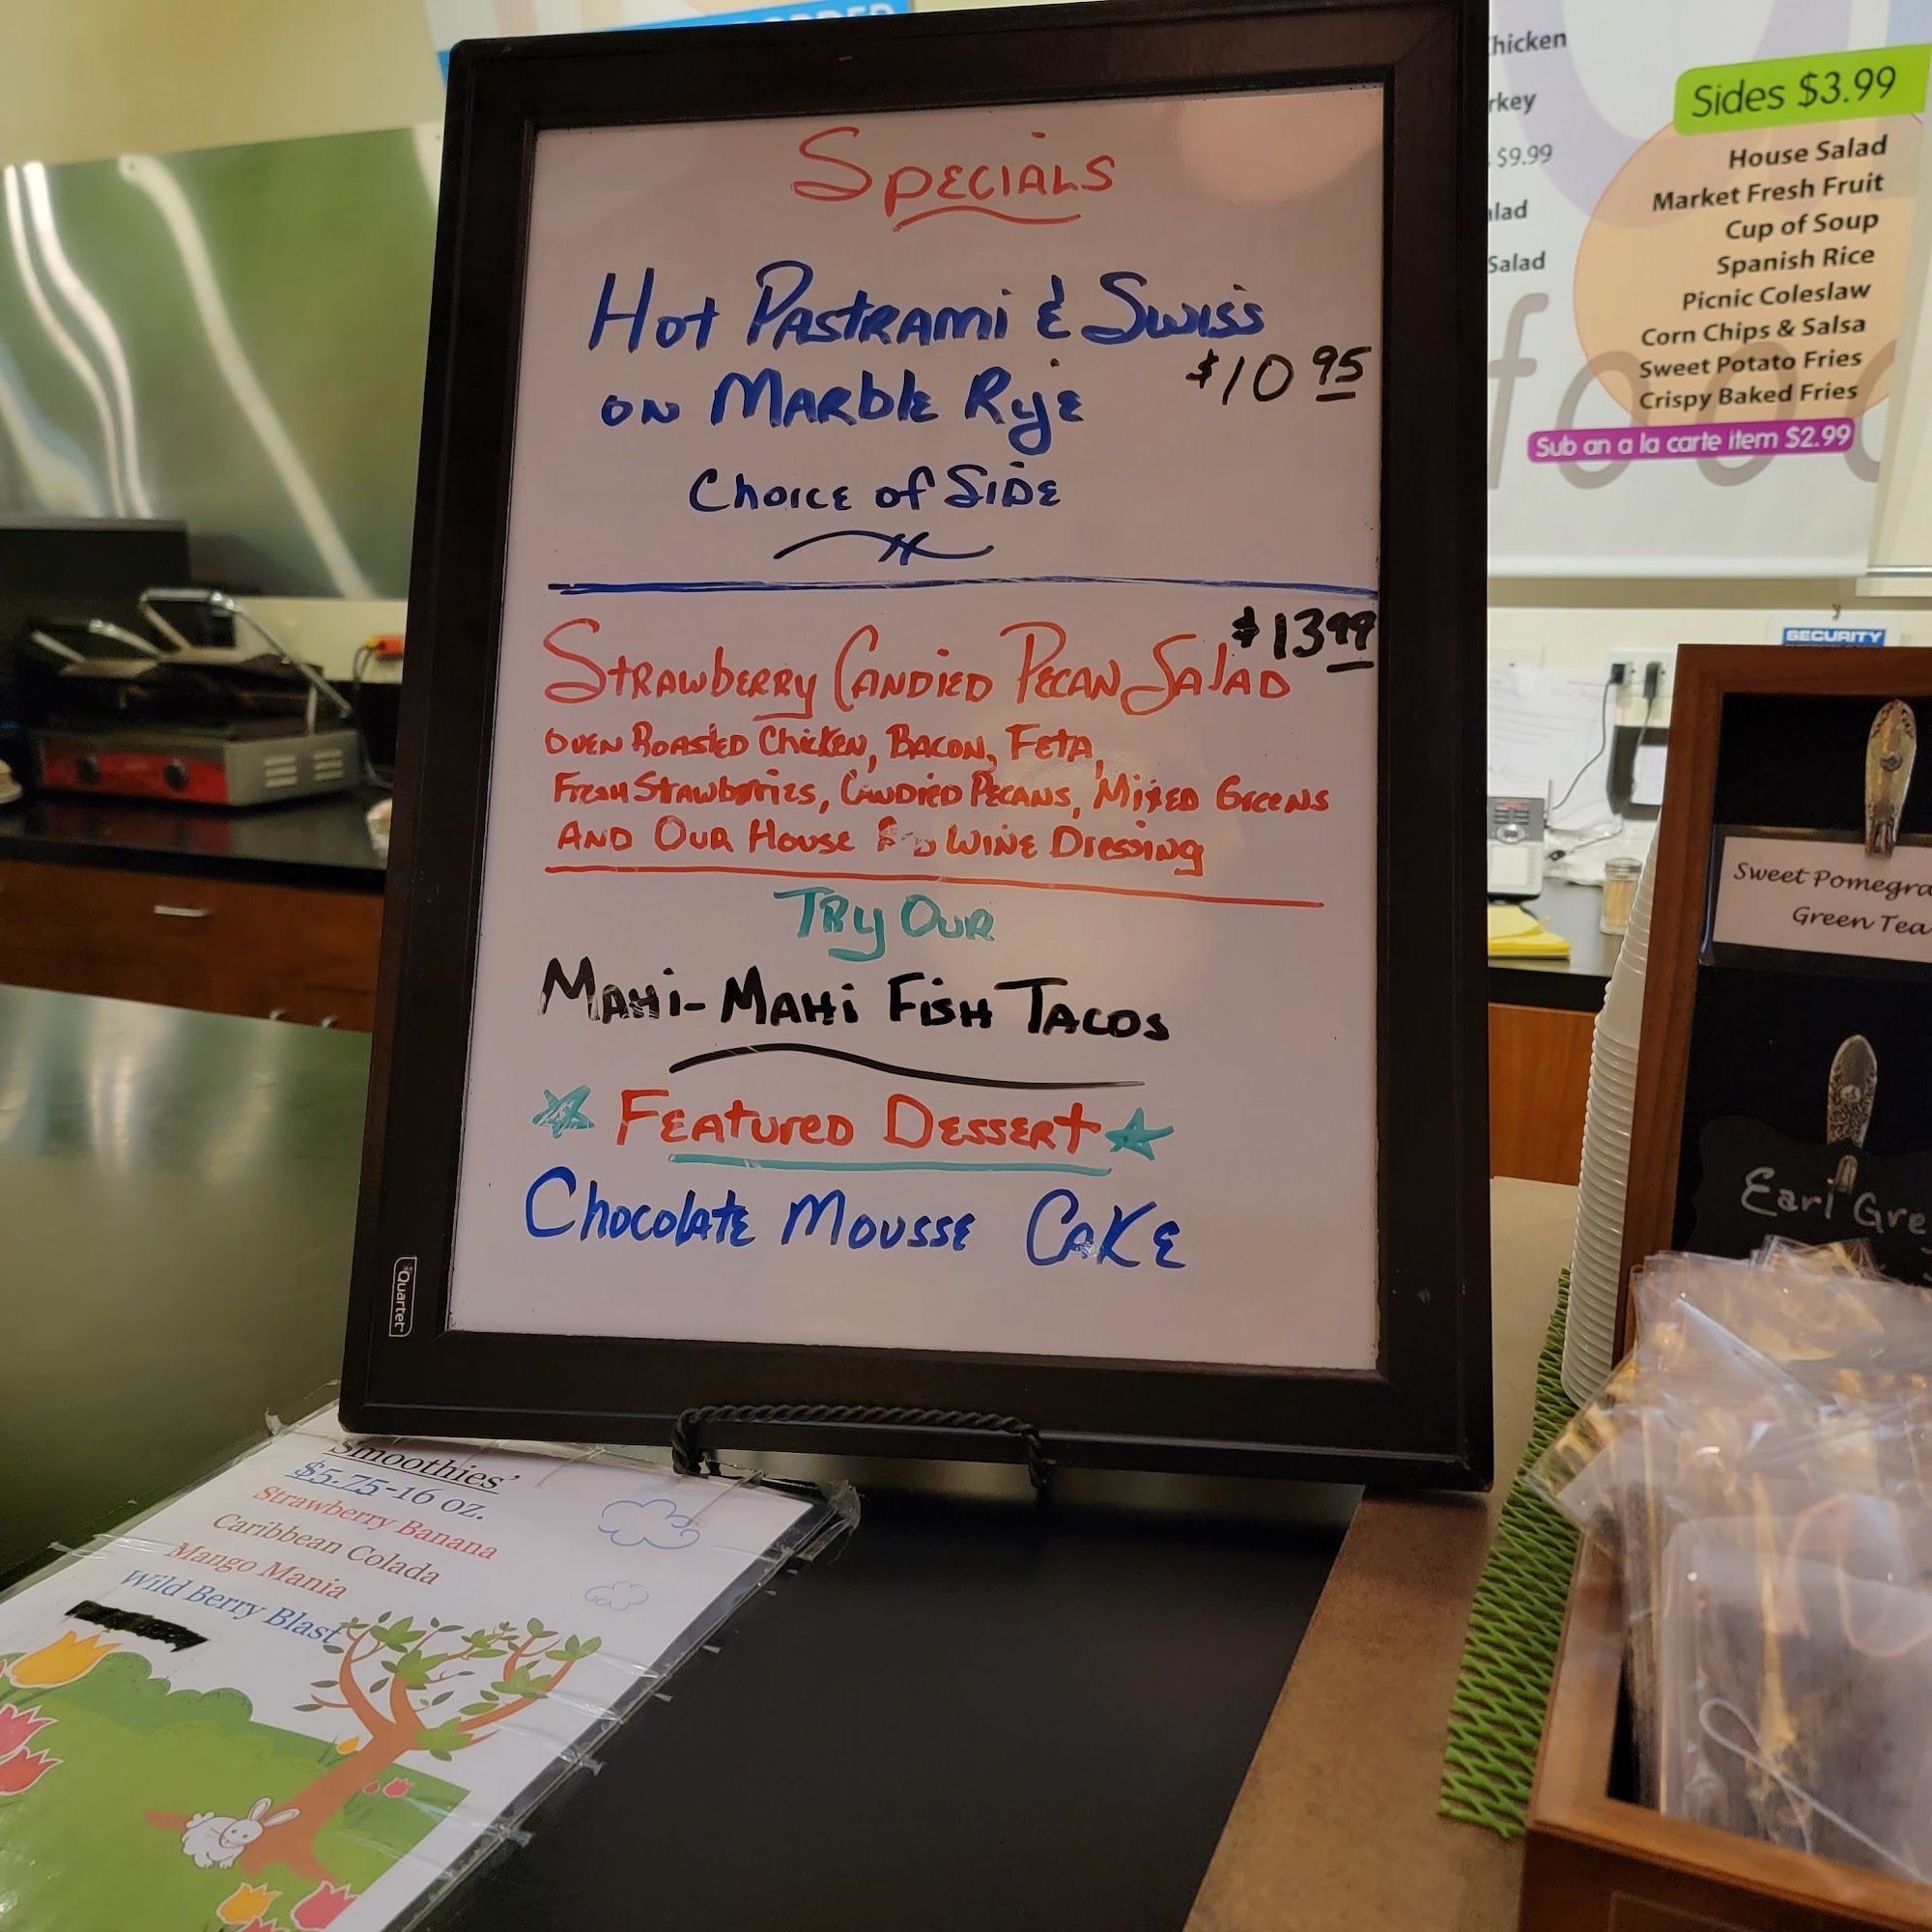 Specials
Hot Pastrami & Swiss
on Marble Rye $10.95
Choice of Side
$13.99
Strawberry Candied Pecan Salad
Oven Roasted Chicken, Bacon, Feta,
Fresh Strawberries, Candied Pecans, Mixed Greens
And Our House Wine Dressing
Try Our
Mahi-Mahi Fish Tacos
Featured Dessert
Chocolate Mousse Cake
Quartet
Smoothies'
$5.75-16 oz.
Strawberry Banana
Caribbean Colada
Mango Mania
Wild Berry Blast
$9.99
Salad
Sides $3.99
House Salad
Market Fresh Fruit
Cup of Soup
Spanish Rice
Picnic Coleslaw
Corn Chips & Salsa
Sweet Potato Fries
Crispy Baked Fries
Sub an a la carte item $2.99
food
SECURITY
Sweet Pomegra
Green Tea
Earl Grey